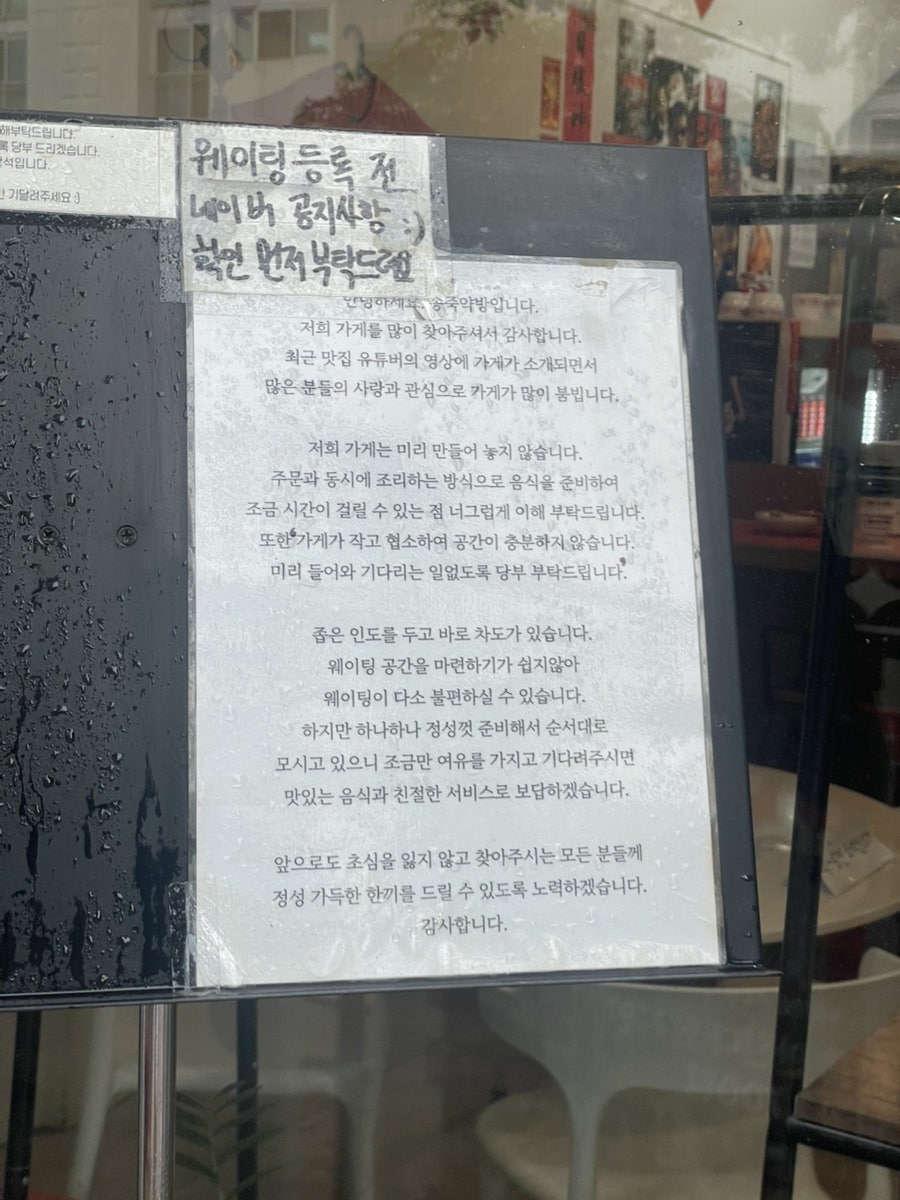 해부탁드립니다.
록 당부 드리겠습니다.
석입니다.
기달려주세요 :)
웨이팅 등록 전
네이버 공지사항 :)
확인 먼저 부탁드려요
안녕하세요. 송죽약방입니다.
저희 가게를 많이 찾아주셔서 감사합니다.
최근 맛집 유튜버의 영상에 가게가 소개되면서
많은 분들의 사랑과 관심으로 가게가 많이 붐빕니다.
저희 가게는 미리 만들어 놓지 않습니다.
주문과 동시에 조리하는 방식으로 음식을 준비하여
조금 시간이 걸릴 수 있는 점 너그럽게 이해 부탁드립니다.
또한 ‘가게가 작고 협소하여 공간이 충분하지 않습니다.
미리 들어와 기다리는 일없도록 당부 부탁드립니다.’
좁은 인도를 두고 바로 차도가 있습니다.
웨이팅 공간을 마련하기가 쉽지않아
웨이팅이 다소 불편하실 수 있습니다.
하지만 하나하나 정성껏 준비해서 순서대로
모시고 있으니 조금만 여유를 가지고 기다려주시면
맛있는 음식과 친절한 서비스로 보답하겠습니다.
앞으로도 초심을 잃지 않고 찾아주시는 모든 분들께
정성 가득한 한끼를 드릴 수 있도록 노력하겠습니다.
감사합니다.